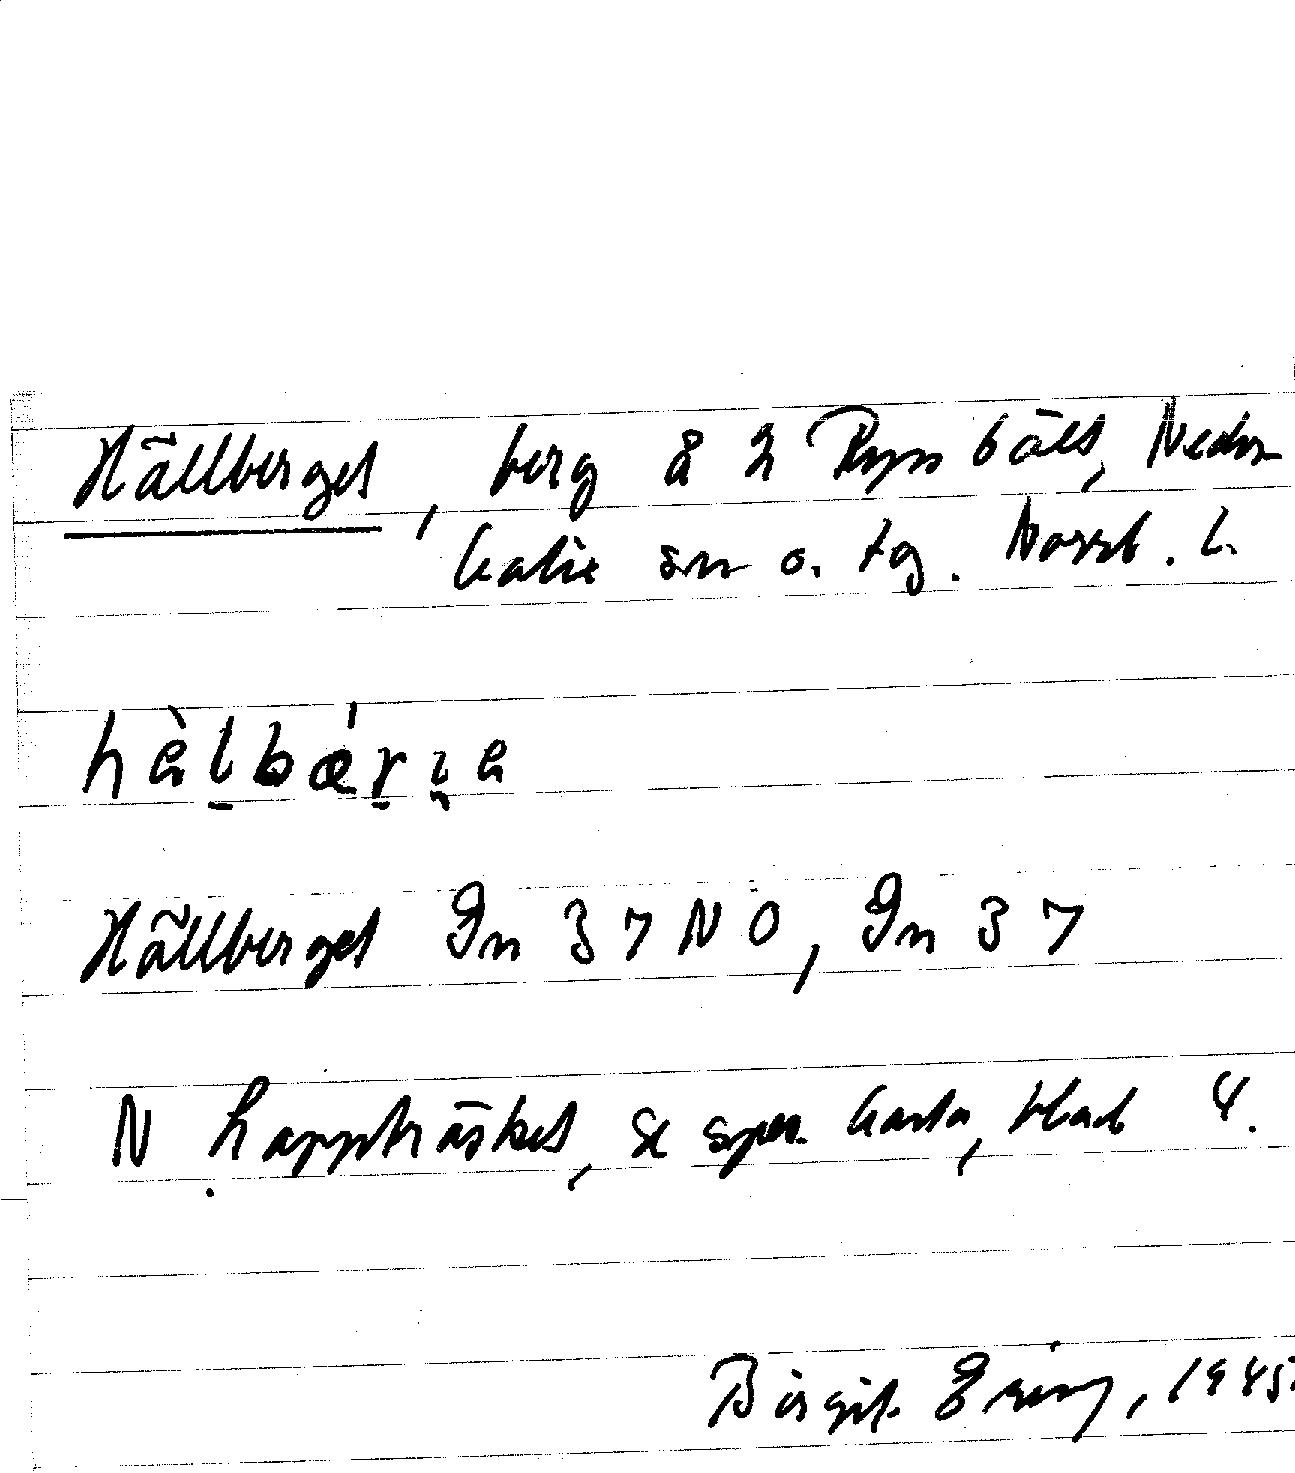 Hällberget, berg å 2 Ryssbält, Neder-
kalix sn o. tg. Norrb. L.
hèl̠bǽr̠i̯e
Hällberget Gn 37 NO, Gn 37
N Lappträsket, se spec. karta, blad 4.
Birgit Ering, 1945.